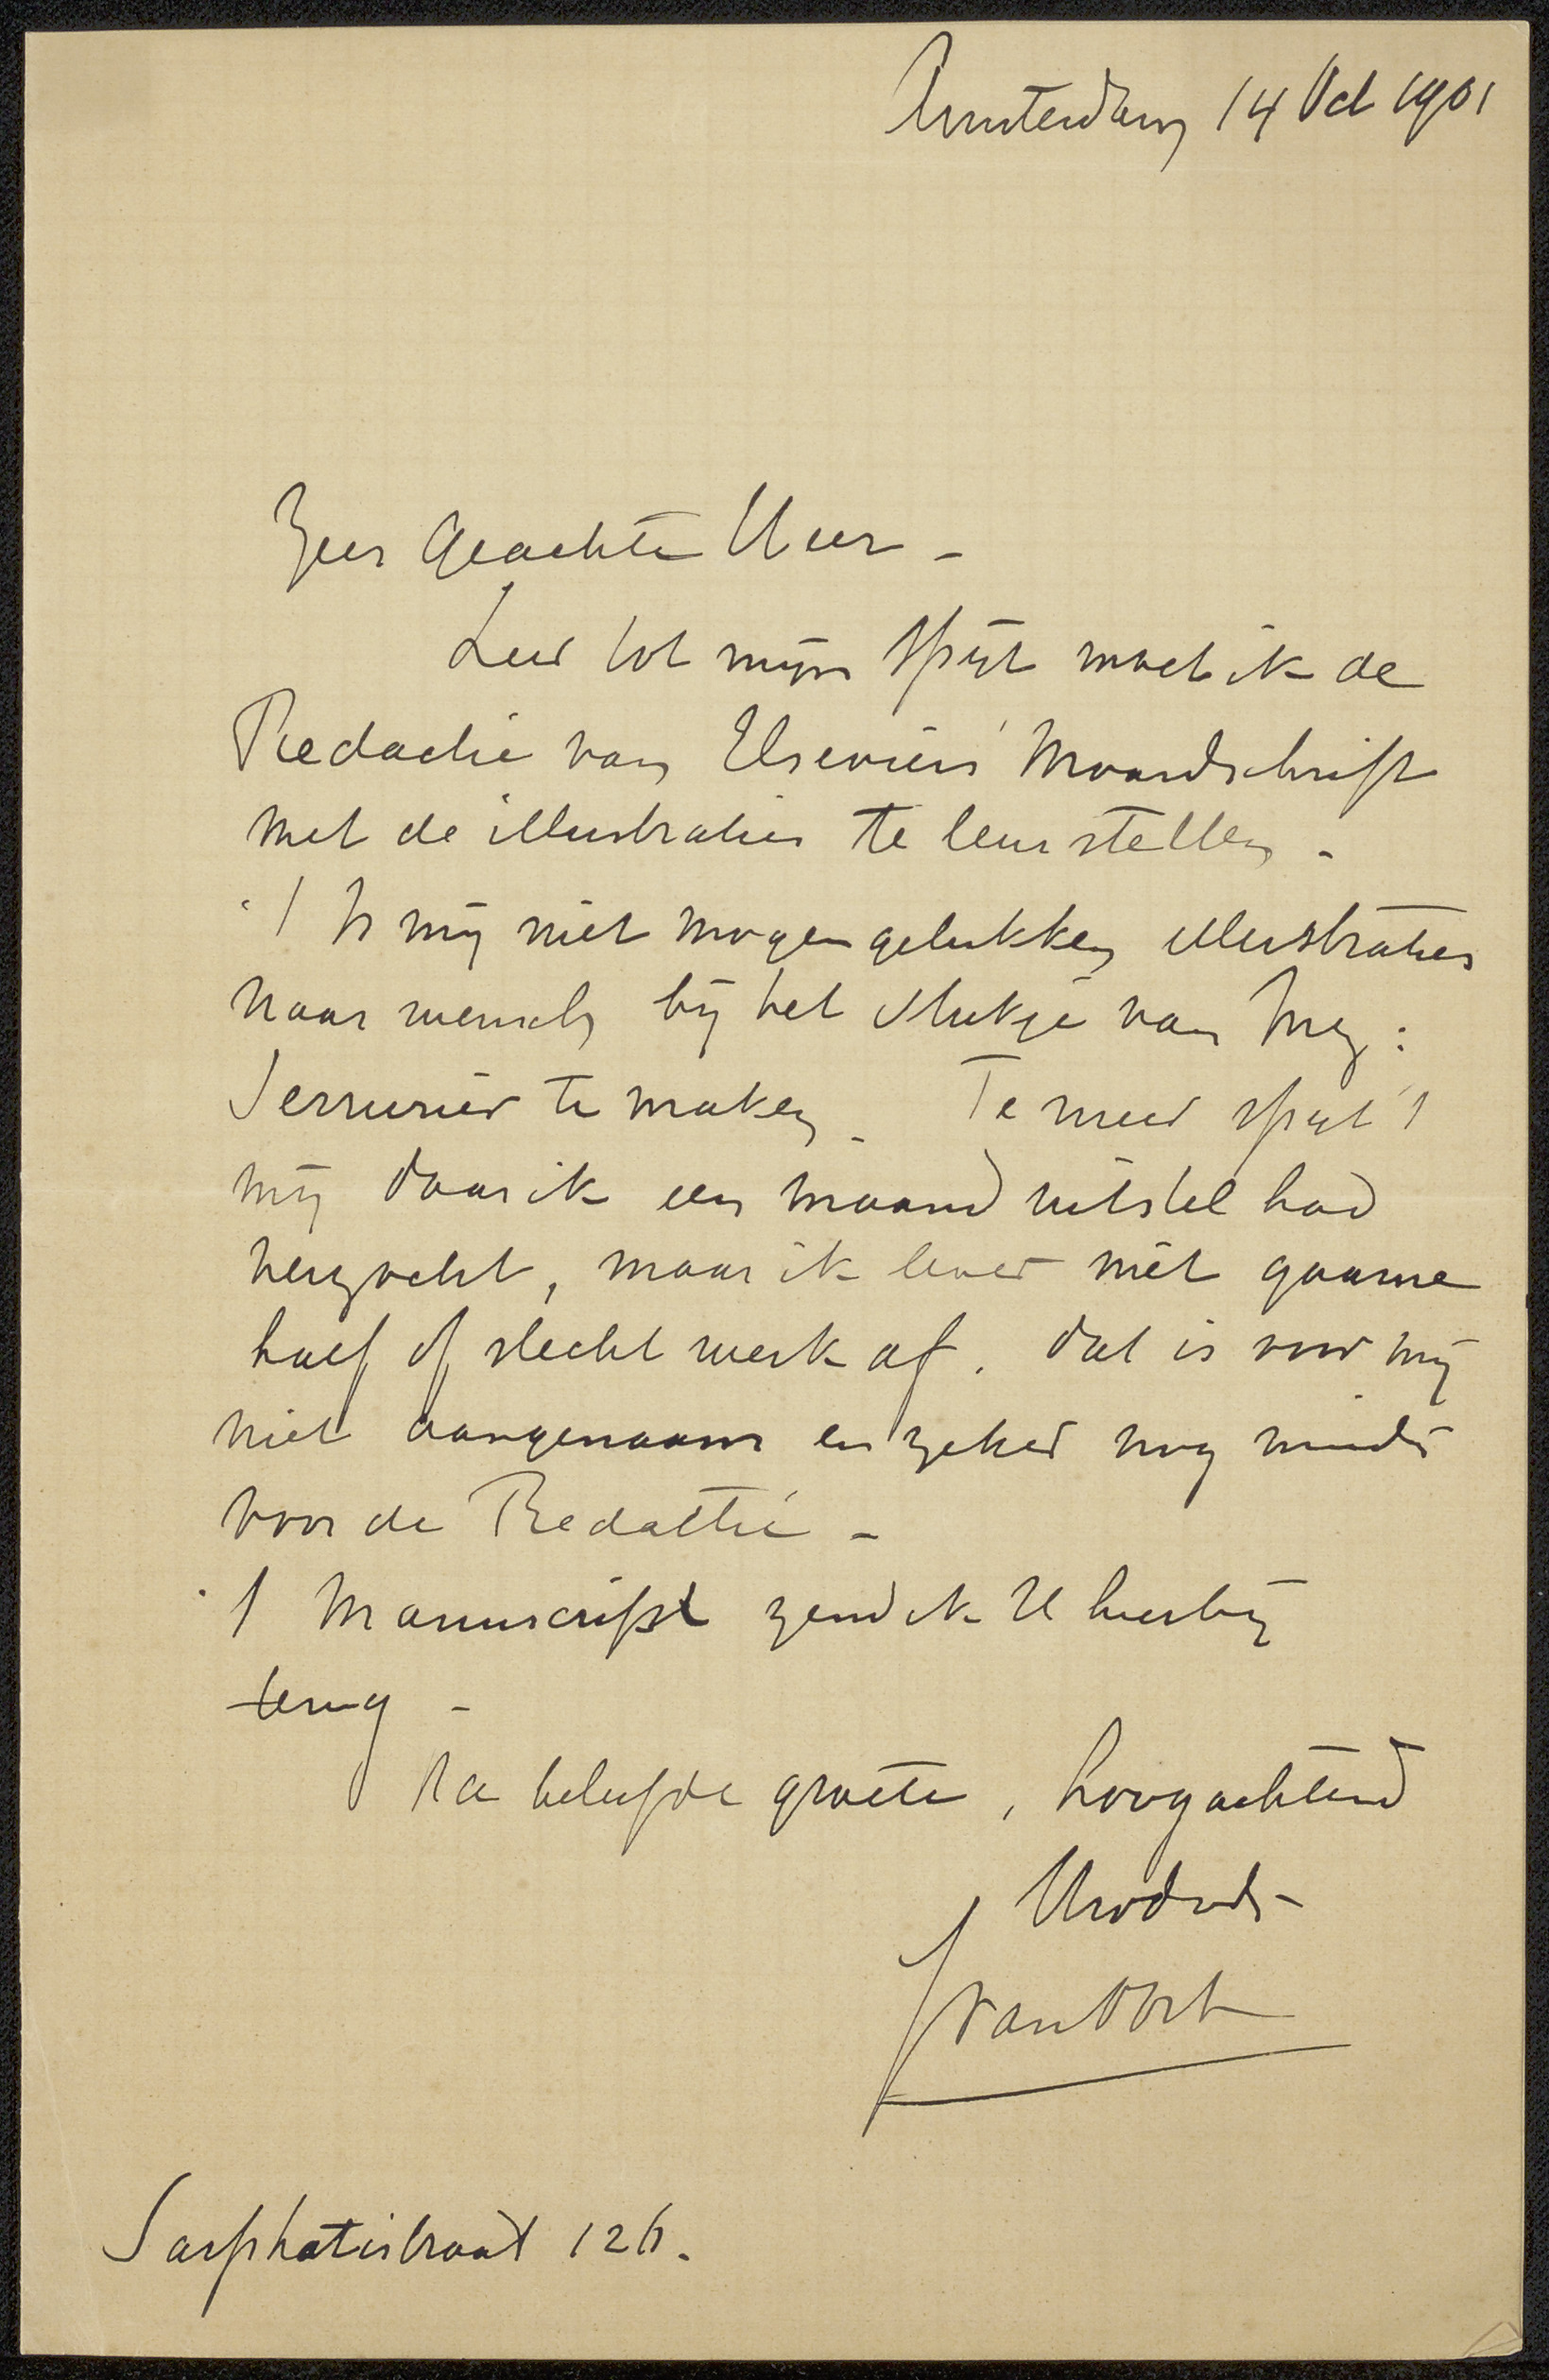 Amsterdam 14 Oct 1901
Zeer Geachte Heer -
Zeer tot mijn spijt moet ik de
Redactie van Elseviers Maandschrift
met de illustraties te leur stellen.
't Is mij niet mogen gelukken illustraties
naar wensch bij het stukje van Mej:
Serrurier te maken. Te meer spijt 't
mij daar ik een maand uitstel had
verzocht, maar ik lever niet gaarne
half of slecht werk af. dat is voor mij
niet aangenaam en zeker nog minder
voor de Redactie -
't Manuscript zend ik U hierbij
terug -
Na beleefde groete, hoogachtend
Uwdw
JvanOort
Sarphatistraat 126.